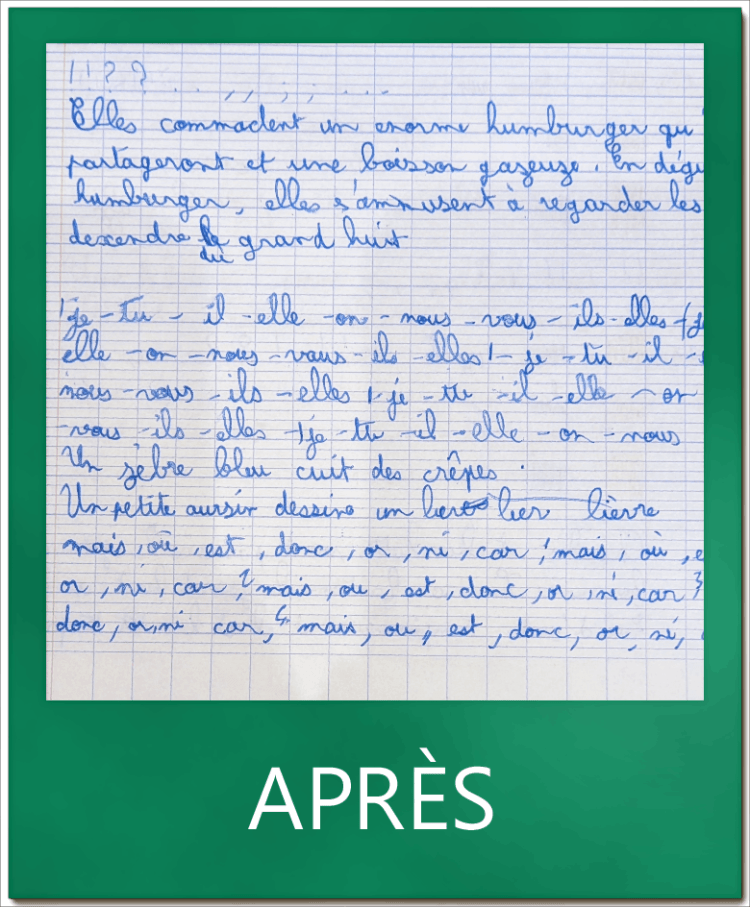 ! ! ? ?
. . . . , , ; ; . . .
Elles commadent un enorme humburger qu'
partageront et une boisson gazeuze. En dégu
humburger, elles s'ammusent à regarder les
descendre le grand huit
du
1 je - tu - il - elle - on - nous - vous - ils - elles
elle - on - nous - vous - ils - elles 1 - je - tu - il -
nous - vous - ils - elles 1 - je - tu - il - elle - on
- vous - ils - elles - 1 je - tu - il - elle - on - nous
Un zèbre bleu cuit des crêpes.
Un petite oursin dessine un lier lièvre
mais, où, est, donc, or, ni, car, ! mais, où, e
or, ni, car, 2 mais, ou, est, donc, or, ni, car 3
donc, or, ni car, 4 mais, ou, est, donc, or, ni,
APRÈS